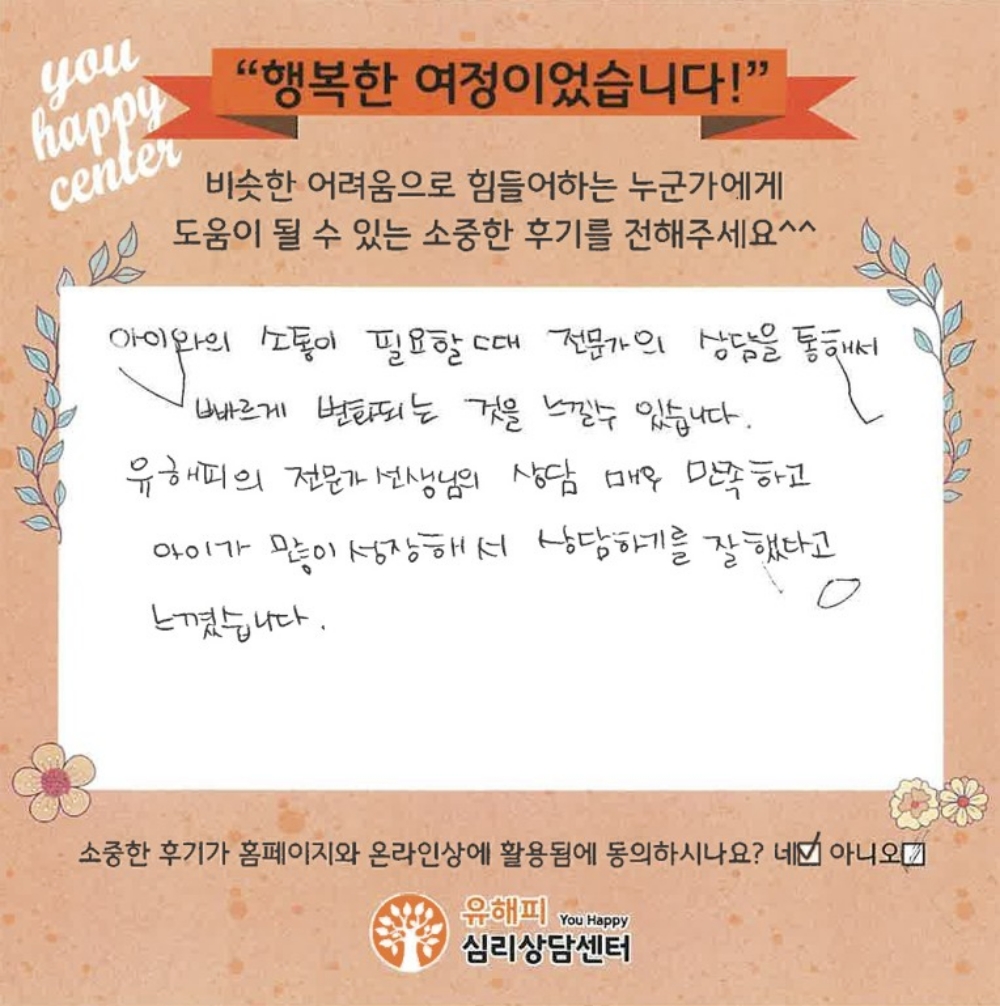 you
happy
center
“행복한 여정이었습니다!”
비슷한 어려움으로 힘들어하는 누군가에게
도움이 될 수 있는 소중한 후기를 전해주세요^^
아이와의 소통이 필요할 때 전문가의 상담을 통해서
빠르게 변화되는 것을 느낄수 있습니다.
유해피의 전문가 선생님의 상담 매우 만족하고
아이가 많이 성장해서 상담하기를 잘했다고
느꼈습니다.
소중한 후기가 홈페이지와 온라인상에 활용됨에 동의하시나요? 네☑ 아니오□
유해피 You Happy
심리상담센터